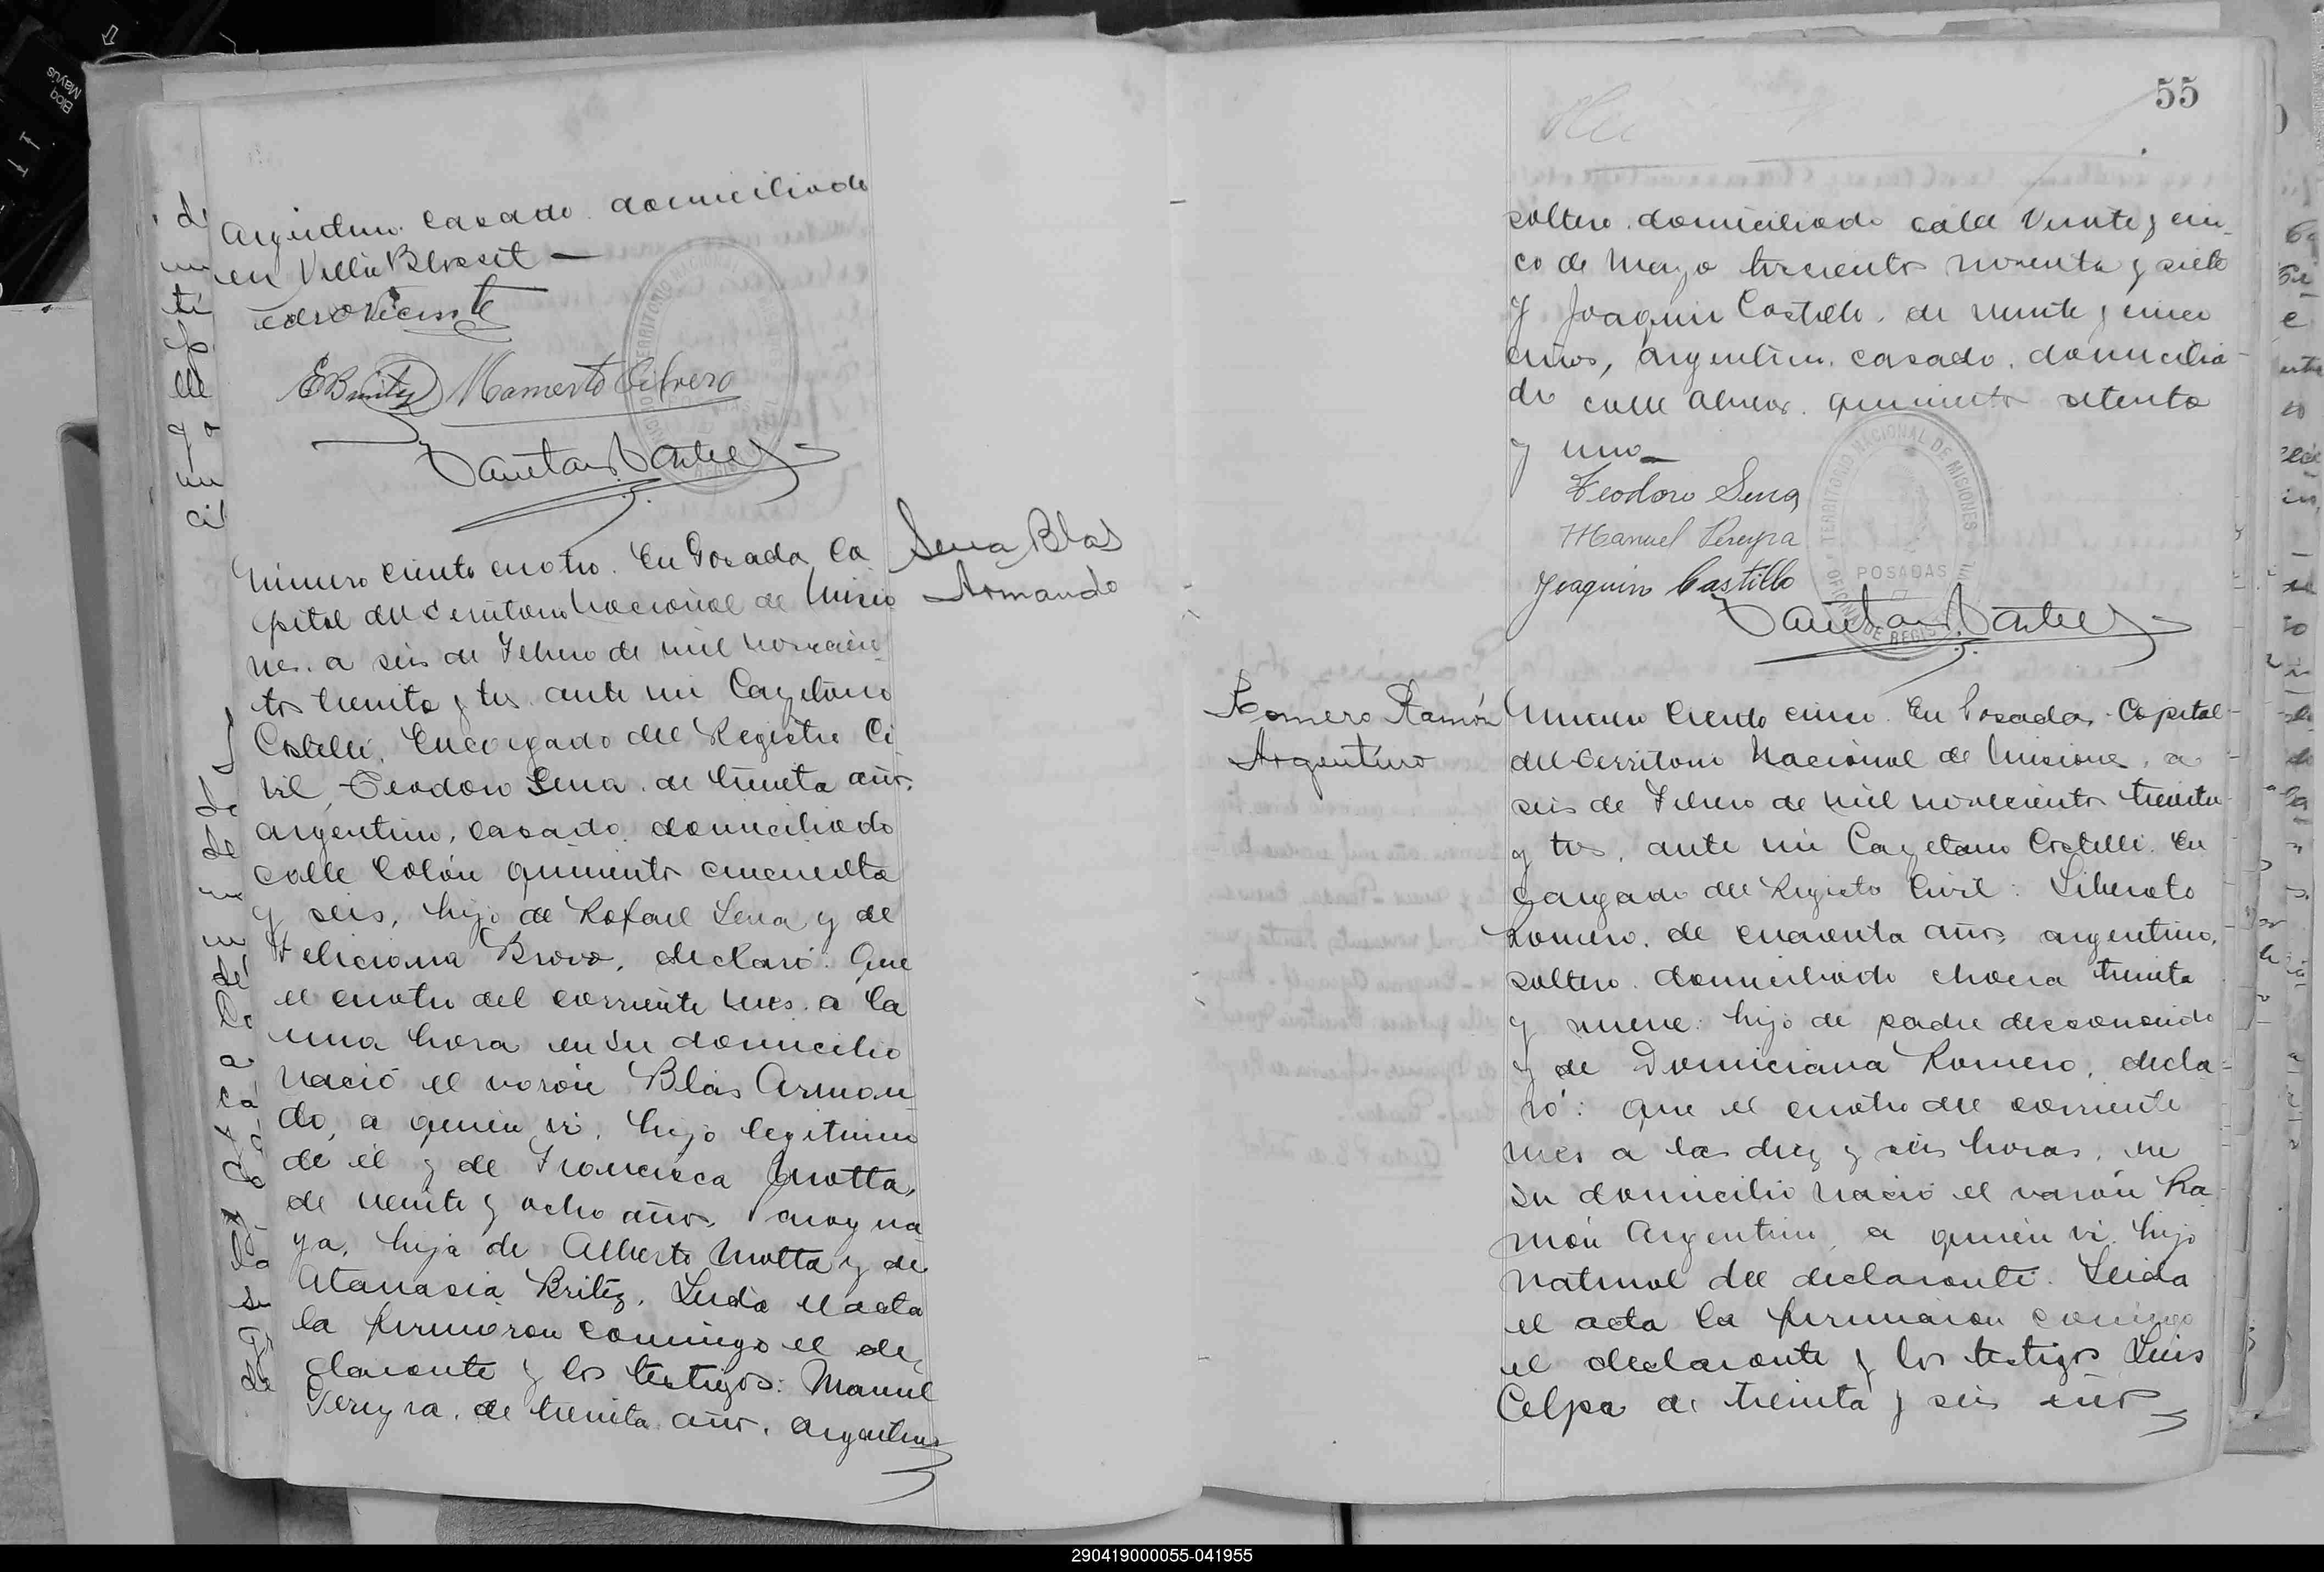 Argentino casado domiciliado
en Villa Blosset —
Vicente
EBenitez Mamerto Cabrera
Número ciento cuatro. En Posada, Ca
pital del Territorio Nacional de Misio
nes. a seis de Febrero de mil novecien
tos treinta y tres ante mi Cayetano
Castelli, Encargado del Registro Ci
vil, Teodoro Sena de treinta años.
argentino, casado domiciliado
calle Colón quinientos cincuenta
y seis, hijo de Rafael Sena y de
Feliciana Bravo, declaró: Que
el cuatro del corriente mes. a la
una hora en su domicilio
nació el varón Blás Arman
do, a quien vi, hijo legitimo
de él y de Francisca Motta,
de veinte y ocho años, Paragua
ya, hija de Alberto Motta y de
Atanasia Britez, Leida el acta
la firmaron conmigo el de
clarante y los testigos: Manuel
Pereyra, de treinta años, argentino
Sena Blas
Armando
55
soltero domiciliado calle Veinte y cin
co de Mayo trescientos noventa y siete
y Joaquin Castillo, de veinte y cinco
años, argentino, casado, domicilia
do calle quinientos setenta
y uno
Teodoro Sena
Manuel Pereyra
Joaquin Castillo
OFICINA DE REGISTRO CIVIL
TERRITORIO NACIONAL DE MISIONES
POSADAS
Romero Ramón
Argentino
Número Ciento cinco. En Posadas Capital
del Territorio Nacional de Misiones, a
seis de Febrero de mil novecientos treinta
y tres, ante mi Cayetano Castelli. En
cargado del Registro Civil: Liberato
Romero, de cuarenta años, argentino,
soltero domiciliado chacra treinta
y nueve: hijo de padre desconocido
y de Domiciana Romero, decla
ró: que el cuatro del corriente
mes a las diez y seis horas, en
su domicilio nació el varón Ra
món Argentino, a quien vi, hijo
natural del declarante. Leida
el acta la firmaron conmigo
el declarante y los testigos Luis
Celpa de treinta y seis años
290419000055-041955